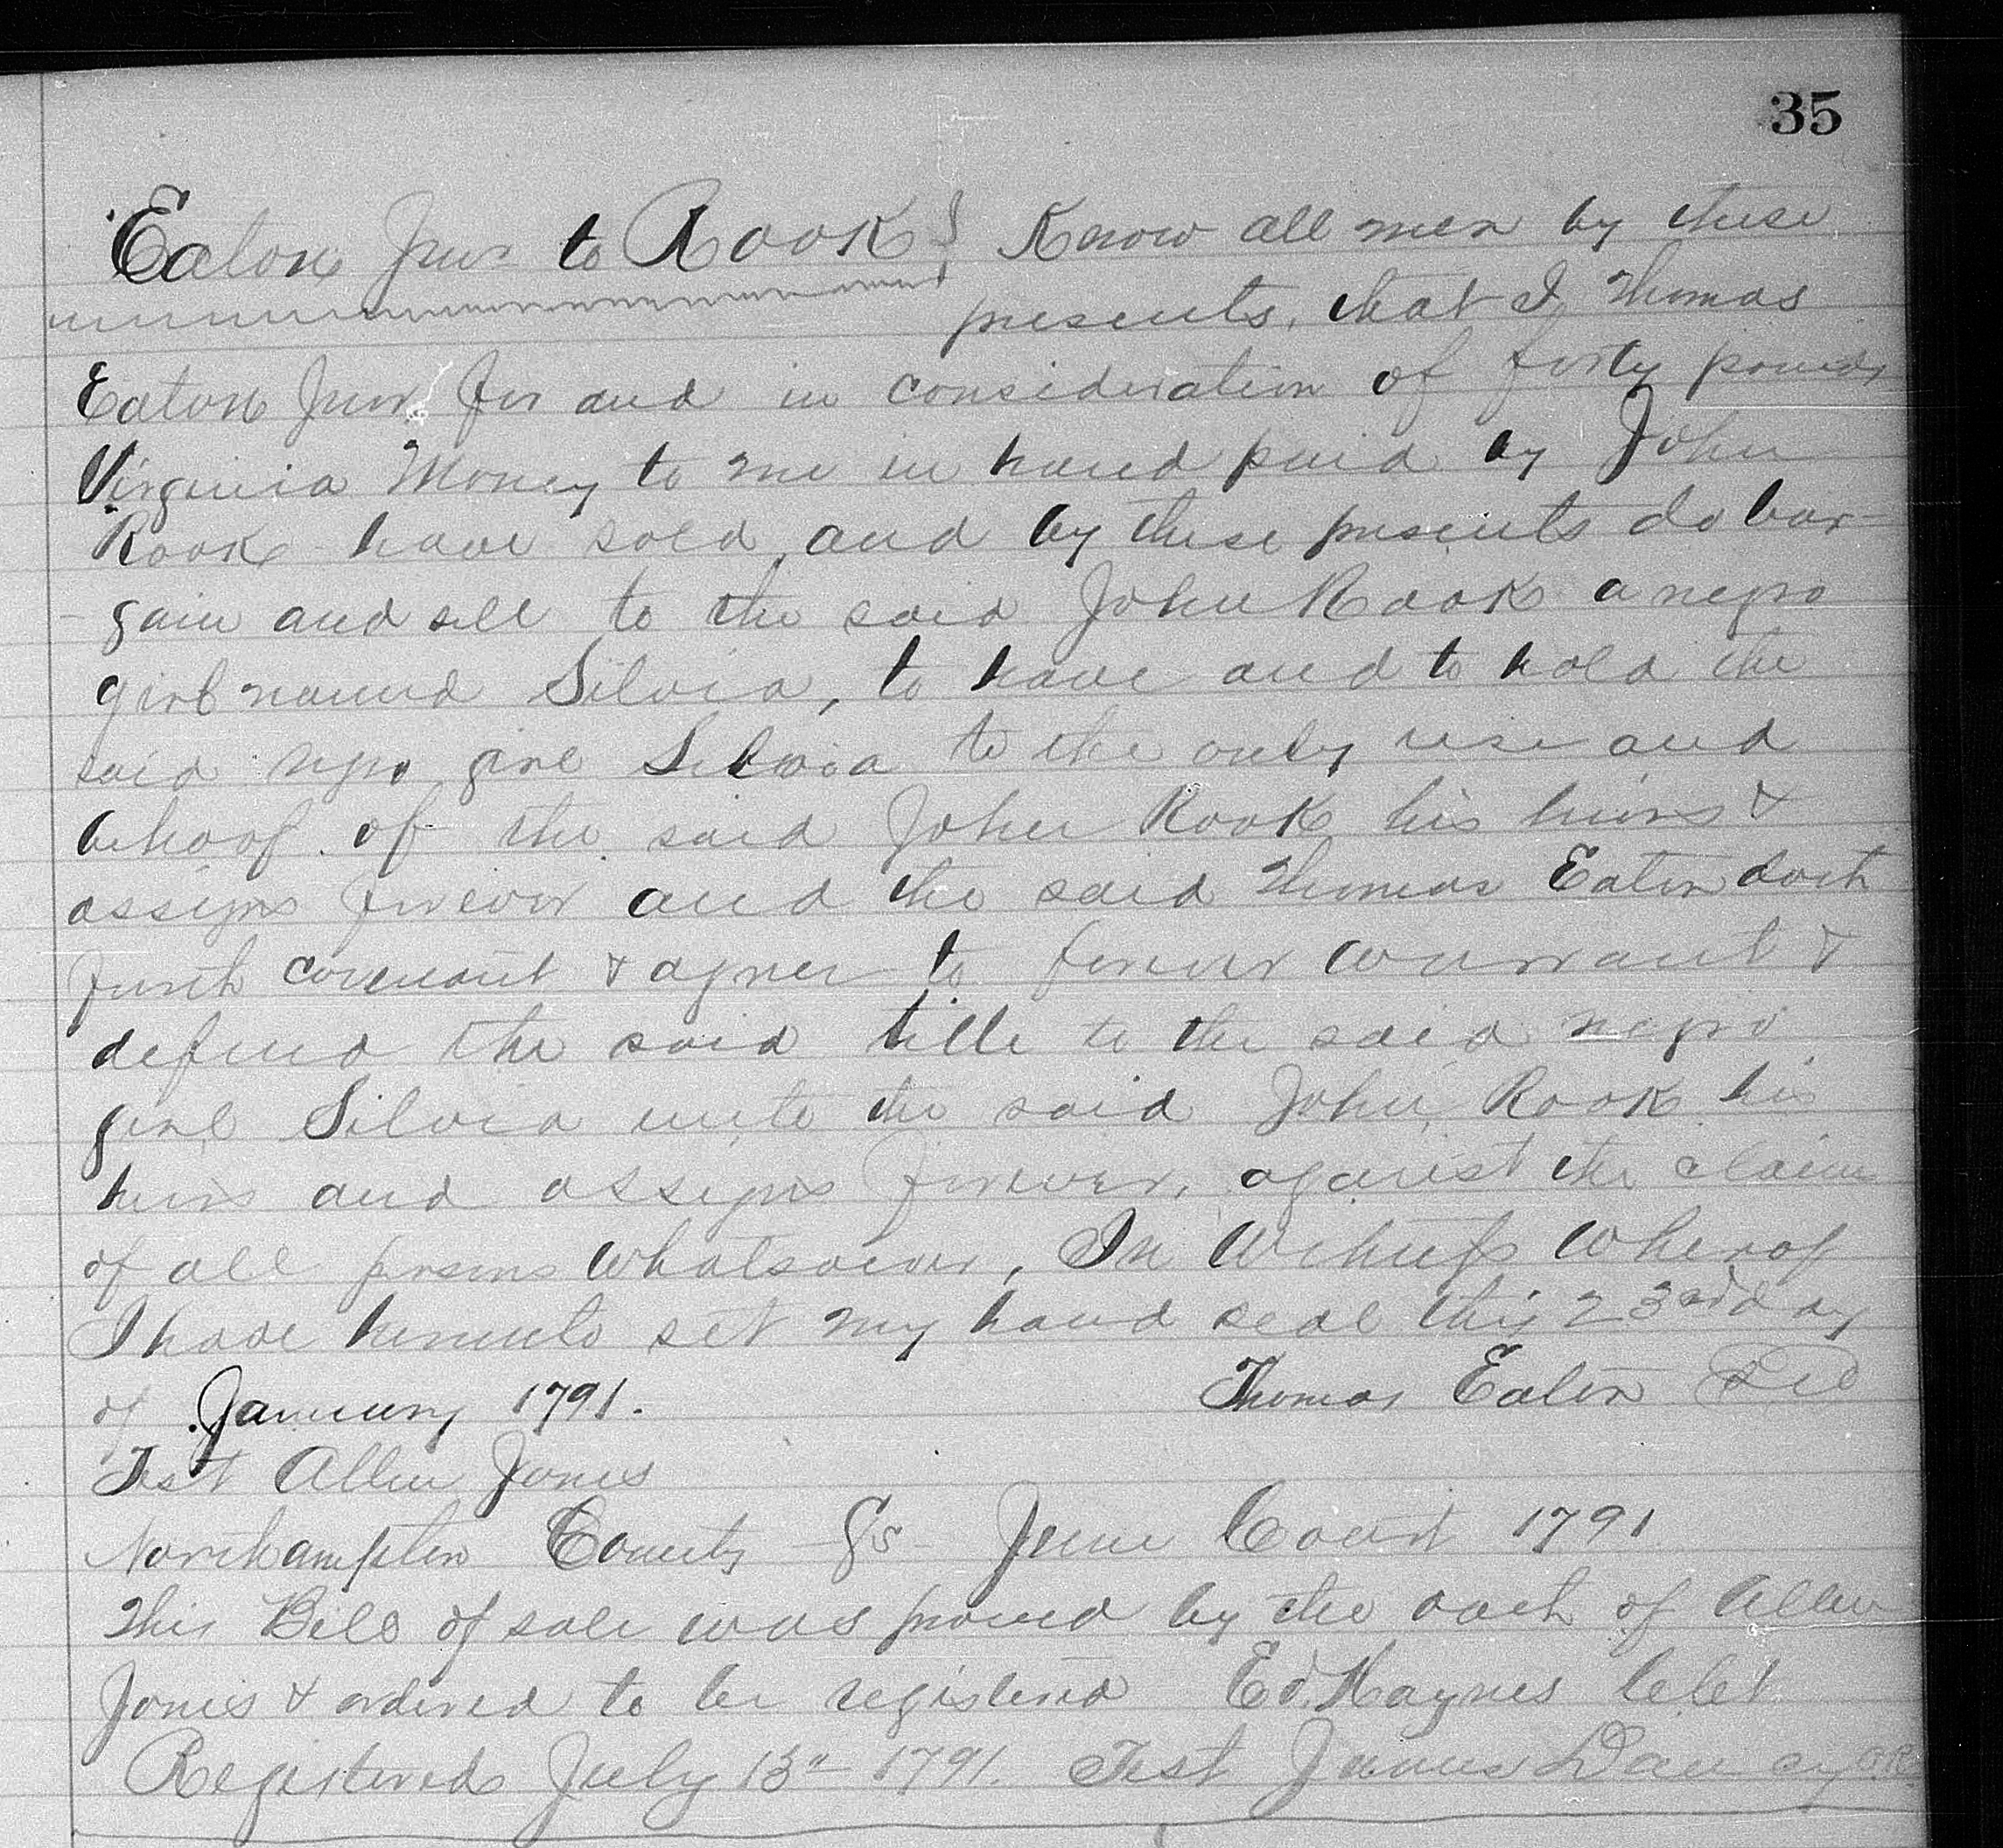 35
Eaton Junr to Rook } Know all men by these
presents, that I Thomas
Eaton Junr for and in consideration of forty pounds
Virginia Money to me in hand paid by John
Rook have sold and by these presents do bar-
-gain and sell to the said John Rook a negro
girl named Silvia, to have and to hold the
said negro girl Silvia to the only use and
behoof of the said John Rook his heirs &
assigns forever and the said Thomas Eaton doth
furth covenant & agree to forever warrant &
defend the said title to the said negro
girl Silvia unto the said John Rook his
heirs and assigns forever, against the claims
of all persons whatsoever, In Witness Whereof
I have hereunto set my hand seal this 23rd day
of January 1791. Thomas Eaton
Test Allen Jones
Northampton County Ss June Court 1791
This Bill of sale was proved by the oath of Allen
Jones & ordered to be registered Ed. Haynes Clk
Registered July 13" 1791. Test James Dancy